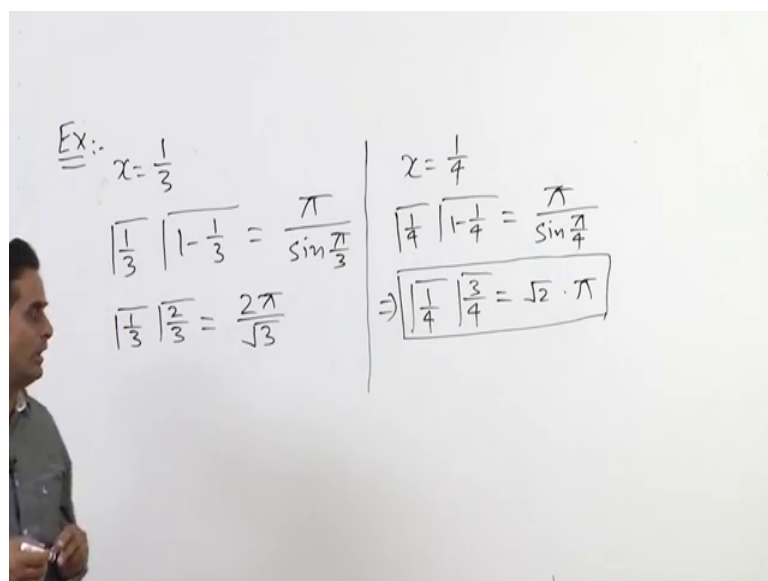 Ex:-
x = 1/3
Γ(1/3) Γ(1 - 1/3) = π / sin π/3
Γ(1/3) Γ(2/3) = 2π / √3
x = 1/4
Γ(1/4) Γ(1 - 1/4) = π / sin π/4
⇒ Γ(1/4) Γ(3/4) = √2 · π